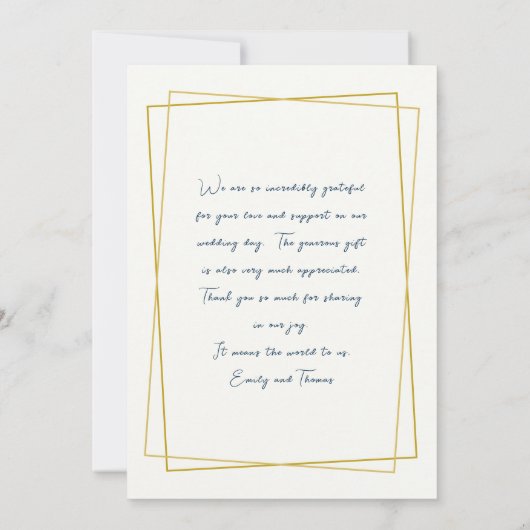 We are so incredibly grateful
for your love and support on our
wedding day. The generous gift
is also very much appreciated.
Thank you so much for sharing
in our joy.
It means the world to us.
Emily and Thomas